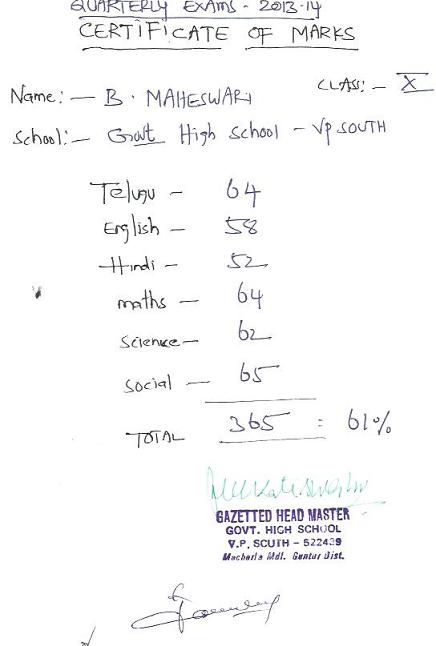 QUARTERLY EXAMS - 2013-14
CERTIFICATE OF MARKS
CLASS:- X
Name:- B. MAHESWARI
School:- Govt High School - VP SOUTH
Telugu - 64
English - 58
Hindi - 52
maths - 64
Science - 62
Social - 65
TOTAL 365 = 61%
GAZETTED HEAD MASTER
GOVT. HIGH SCHOOL
V.P. SOUTH - 522439
Macherla Mdl. Guntur Dist.